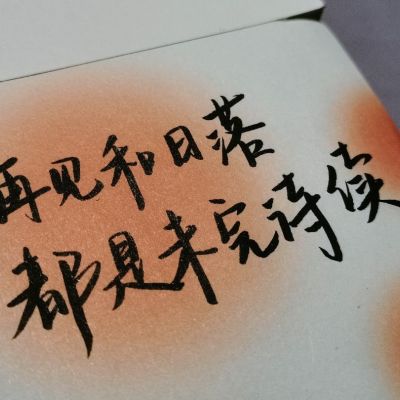 再见和日落
都是未完待续